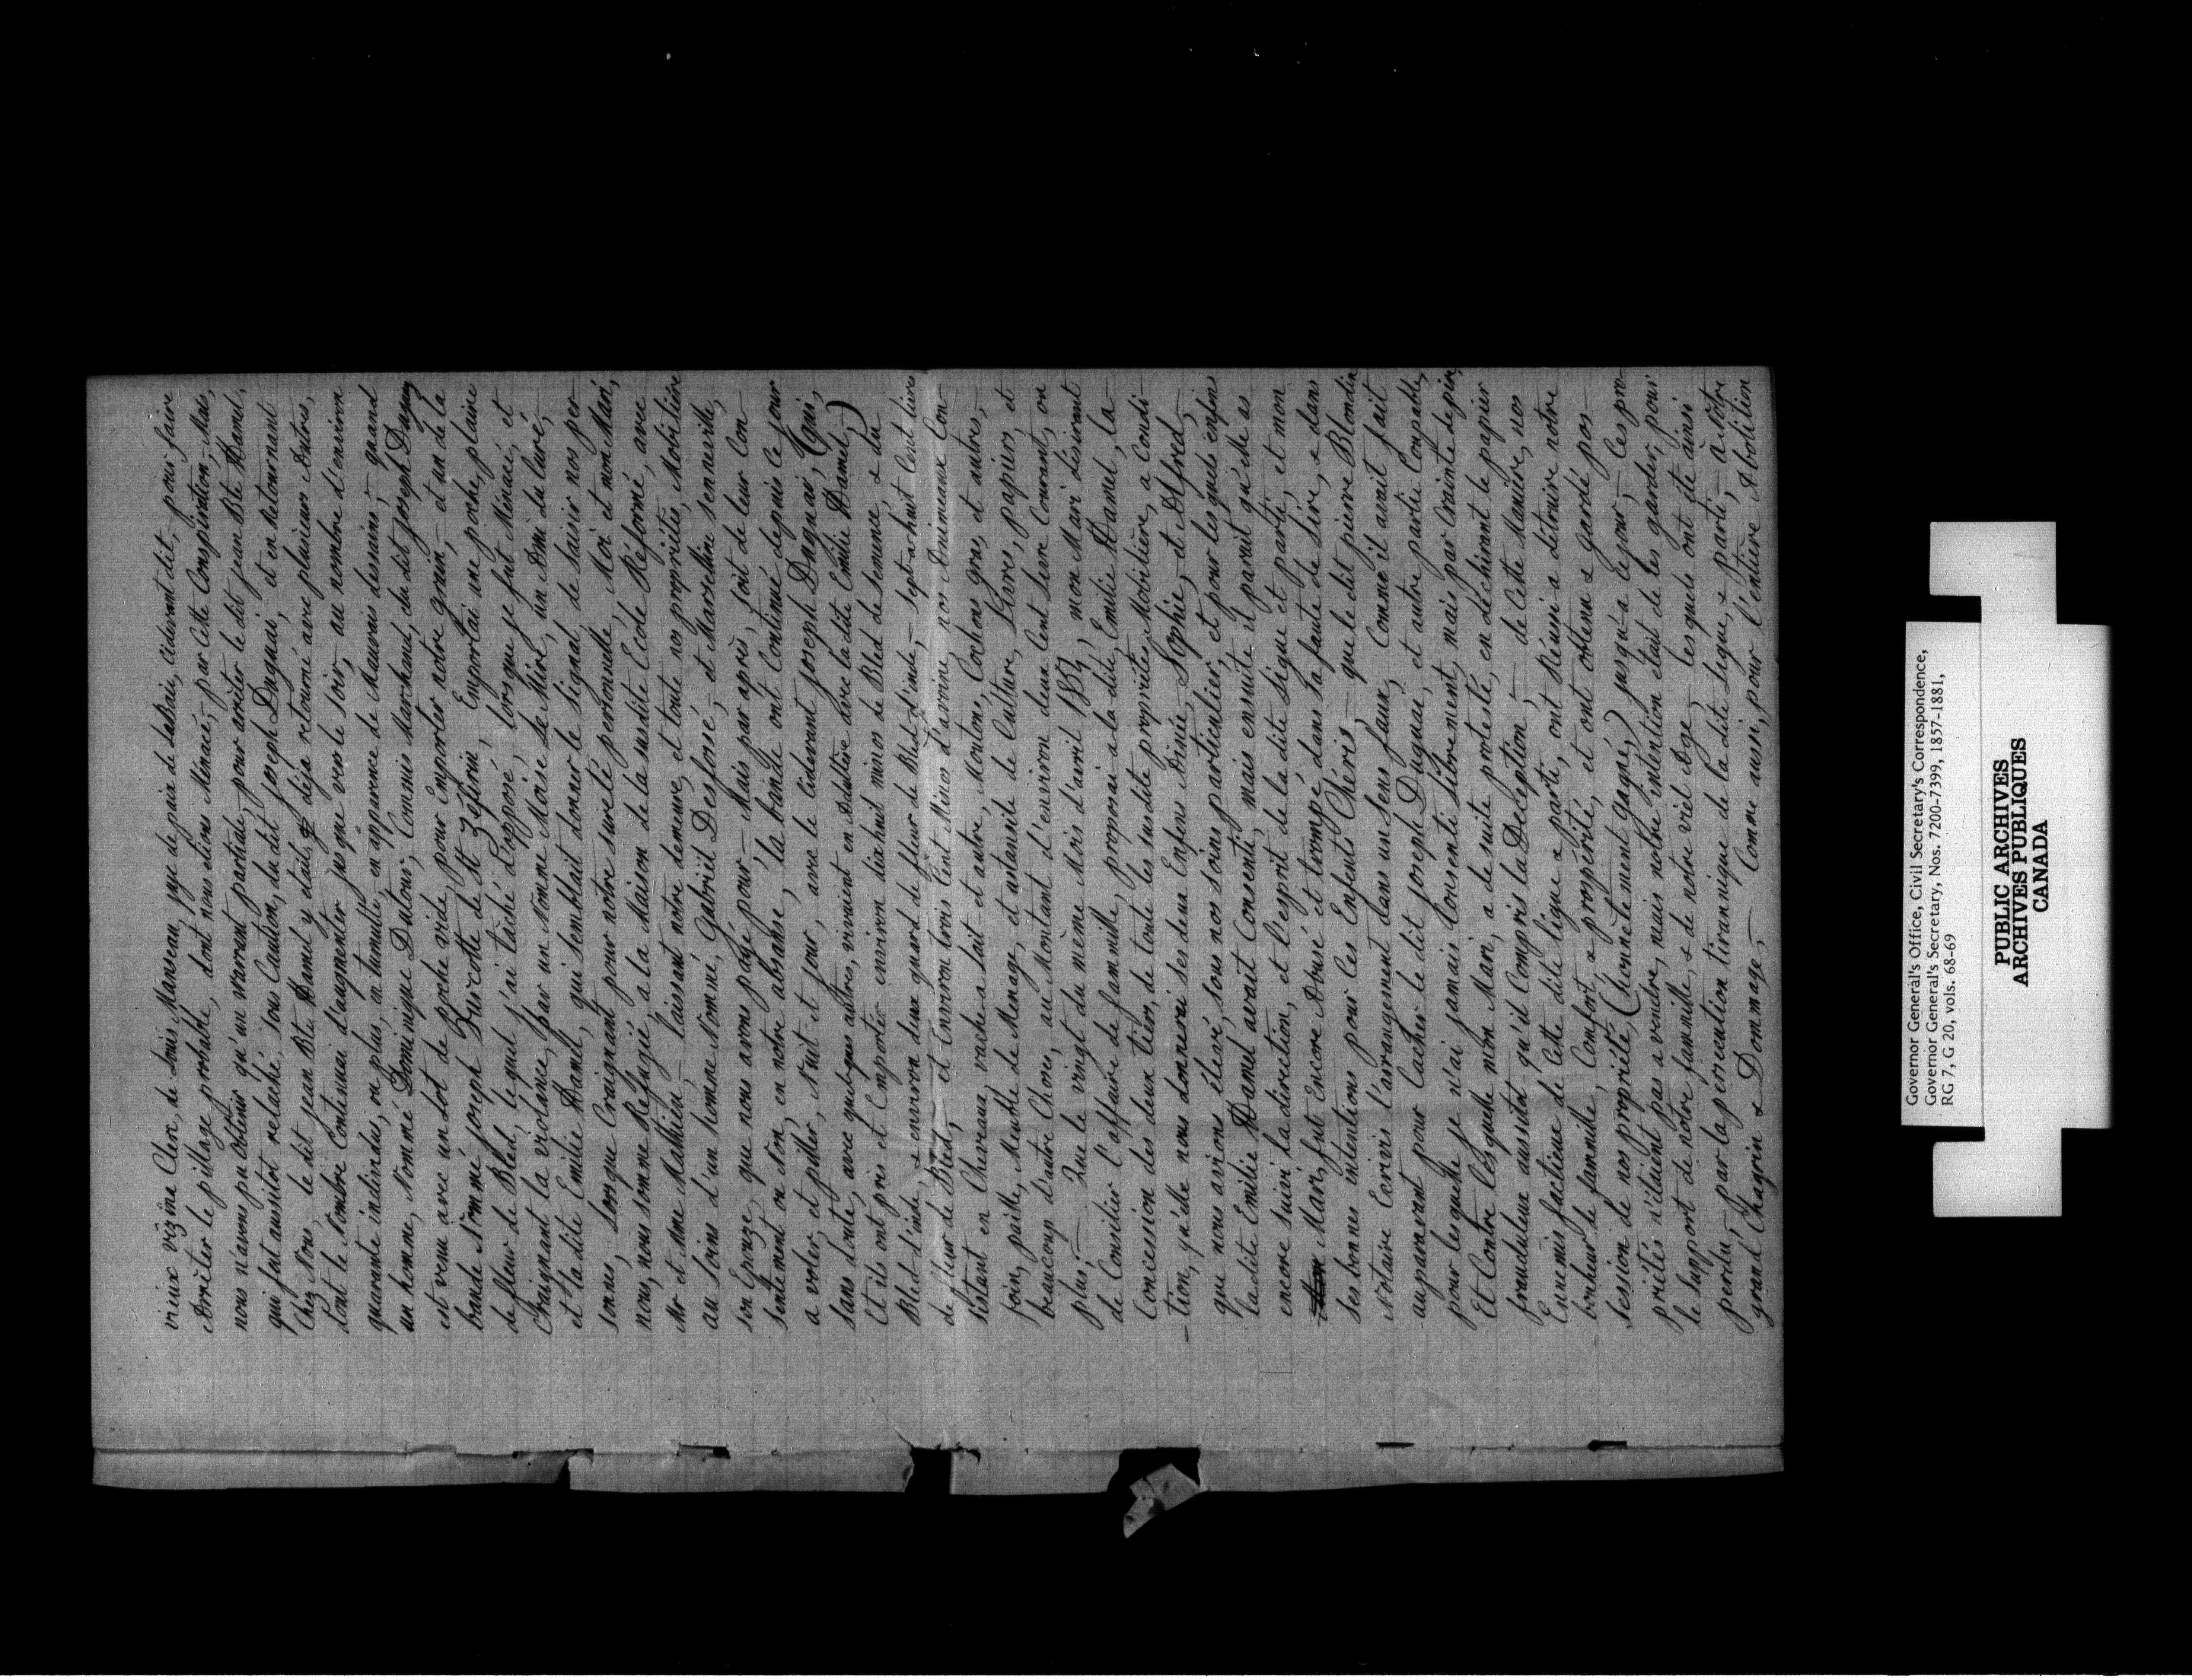 vieux vizine Clerc, de Louis Manseau, juge de paix de LaBaie, cidevant dit, pour faire
Arrêter le pillage probable, dont nous etions Ménacé, par cette Conspiration – Mais,
nous n'avons pu obtenir qu'un Warrant partiale, pour arrêter le dit jean Bte Hamel,
qui fut aussitot relaché, sous Caution, du dit joseph Duguai, et en Retournant
Chez Nous, le dit jean Bte Hamel y etait déja retourné avec plusieurs Autres,
dont le Nombre Continuai d'augmenter jusque vers le soir, au nombre d'environ
quarante individus, ou plus, en tumulte, en apparence de Mauvais dessains, quand
un homme, Nommé Dominique Dutour, Commis Marchand, du dit joseph Duguay
est venu avec un lot de poche vide, pour Emporter notre grain, – et un de la
bande Nommé joseph Turcotte de St Zéfirin, Emportai une poche, plaine
de fleur de Bled, lequel j'ai taché d'opposé, lorsque je fut Ménacé, et
Craignant la violance, par un Nomme Moise Le Mire, un Ami du Curé,
et la dite Emilie Hamel, qui semblait donner le signal, de saisir nos per-
sonnes, Lorsque Craignant pour notre sureté personnelle, Moi et mon Mari,
nous, nous somme Refugié a la Maison de la susdite Ecole Réformé, avec
Mr et Mme Mathieu, – laissant notre demeure, et toute nos propriétés, Mobilière
au soins d'un homme Nommé, Gabriel Desfossé, – et Marseline senneville,
son Epouze, que nous avons payé pour, – Mais par après, soit de leur Con
sentement ou Non, en notre absanse, la bande ont Continué depuis ce jour
a voler et piller, Nuit et jour, avec le cidevant joseph Duguai, (qui,
sans doute, avec quelques autres, vivaient en Adultère avec la dite Emilie Hamel,)
Et ils ont pris et Emporter environ dix huit minos de Bled de semence & du
Bled-d'inde, & environ deux quard de fleur de Bled d'inde, – sept a huit Cent livre
de fleur de Bled, et Environ trois Cent Minos d'avoine nos Animeaux Con-
sistant en Chevraux, vache a lait et autre, Moutons, Cochons gras, et autres, –
foin, paille, Meuble de Menage, et ustansile de Culture, Livres, papiers, et
beaucoup d'autre Choses, au Montant d'environ deux Cent Livre Courant, ou
plus; – Que le vingt du mème Mois d'avril 1859, mon Mari désirant
de Consilier l'affaire de fammille, proposai a la dite, Emilie Hamel, la
Concession des deux tiers, de toute les susdite propriétés Mobilière, a Condi-
– tion, qu'elle nous donnerai ses deux Enfens Ainée, Sophie, et Alfred,
que nous avions élevé, sous nos soins particulier, et pour lesquels enfins
la dite Emilie Hamel avait Consenti, mais ensuite il parait qu'elle as
encore suivi la direction, et l'esprit de la dite Ligue et parti, et mon
Mari, fut Encore Abusé et trompé, dans sa faute de Lire, & dans
ses bonnes intentions pour Ces Enfents Chéris, – que le dit pierre Blondin
Notaire Ecrivis l'arrangement dans un sens faux, Comme il avait fait
auparavant pour Cacher le dit joseph Duguai, et autre partie Coupable,
pour lesquelle je n'ai jamais Consenti librement, mais par Crainte de pire,
Et Contre lesquelle mon Mari, a de suite protesté, en déchirant le papier
frauduleux aussitot qu'il Compris la Déception; – de Cette Manière, nos
Ennemis factieux de Cette dite ligue & parti, ont Réussi a détruire notre
bonheur de fammille, Comfort, & prospérité, et ont obtenu & gardé pos-
session de nos propriété, (honnêtement gagné,) jusqu'-a ce jour, – Ces pro-
priétés n'étaient pas a vendre, mais notre intention était de les garder, pour
le support de notre fammille, & de notre vieil Age, – lesquels ont été ainsi
perdu, – par la persécution tirannique de la dite Ligue, & parti, – a Nôtre
grand Chagrin & Dommage, – Comme aussi, pour l'entière Abolition
Governor General's Office, Civil Secretary's Correspondence,
Governor General's Secretary, Nos. 7200-7399, 1857-1881,
RG 7, G 20, vols. 68-69
PUBLIC ARCHIVES
ARCHIVES PUBLIQUES
CANADA